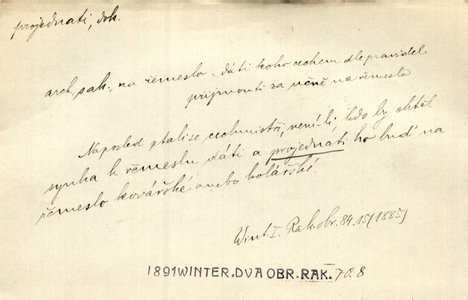 projednati, dok.
arch. sak. na řemeslo - dáti koho cechem dle pravidel
přijmouti za učně na řemeslo
Naposled ptali se cechmistři, není-li kdo by chtěl
synka k řemeslu dáti a projednati ho buď na
řemeslo kovářské anebo kolářské.
Wint I. Rak. obr. 84.15 (1885)
1891 WINTER. DVA OBR. RAK. 7 a 8